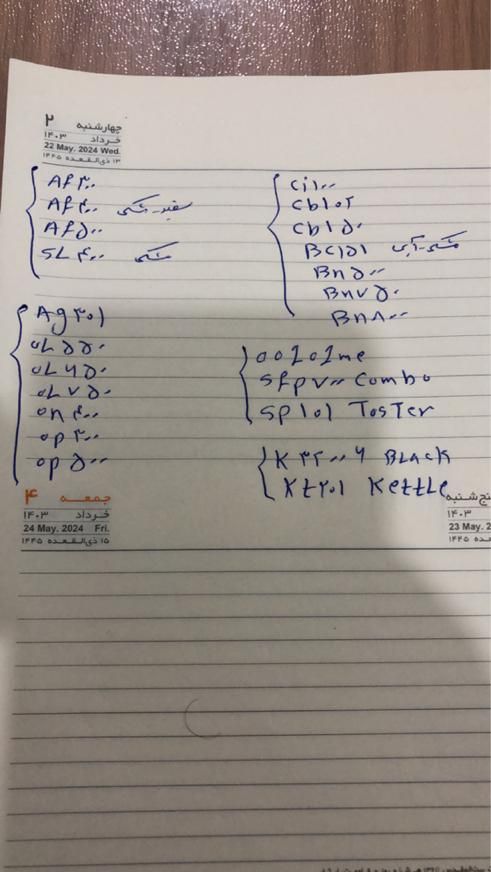 ۲
چهارشنبه
خرداد ۱۴۰۳
22 May. 2024 Wed.
۱۳ ذی‌القعده ۱۴۴۵
Af ۳۰۰
Af ۴۰۰ سفید-مشکی
Af ۵۰۰
SL ۴۰۰ مشکی
Ag ۳۰۱
oL ۵۵۰
oL ۶۵۰
oL ۷۵۰
on ۴۰۰
op ۳۰۰
op ۵۰۰
Ci ۱۰۰
Cb ۱۰۲
Cb ۱۵۰
BC ۱۵۱ مشکی-آبی
Bn ۵۰۰
Bn ۷۵۰
Bn ۸۰۰
00101me
Sfp ۷۰۰ Combo
Sp ۱۰۱ TosTer
K ۳۲۰۰۶ BLACK
Kt ۲۰۱ Kettle
۴ جمعه
خرداد ۱۴۰۳
24 May. 2024 Fri.
۱۵ ذی‌القعده ۱۴۴۵
پنج شنبه
۱۴۰۳
23 May. 2